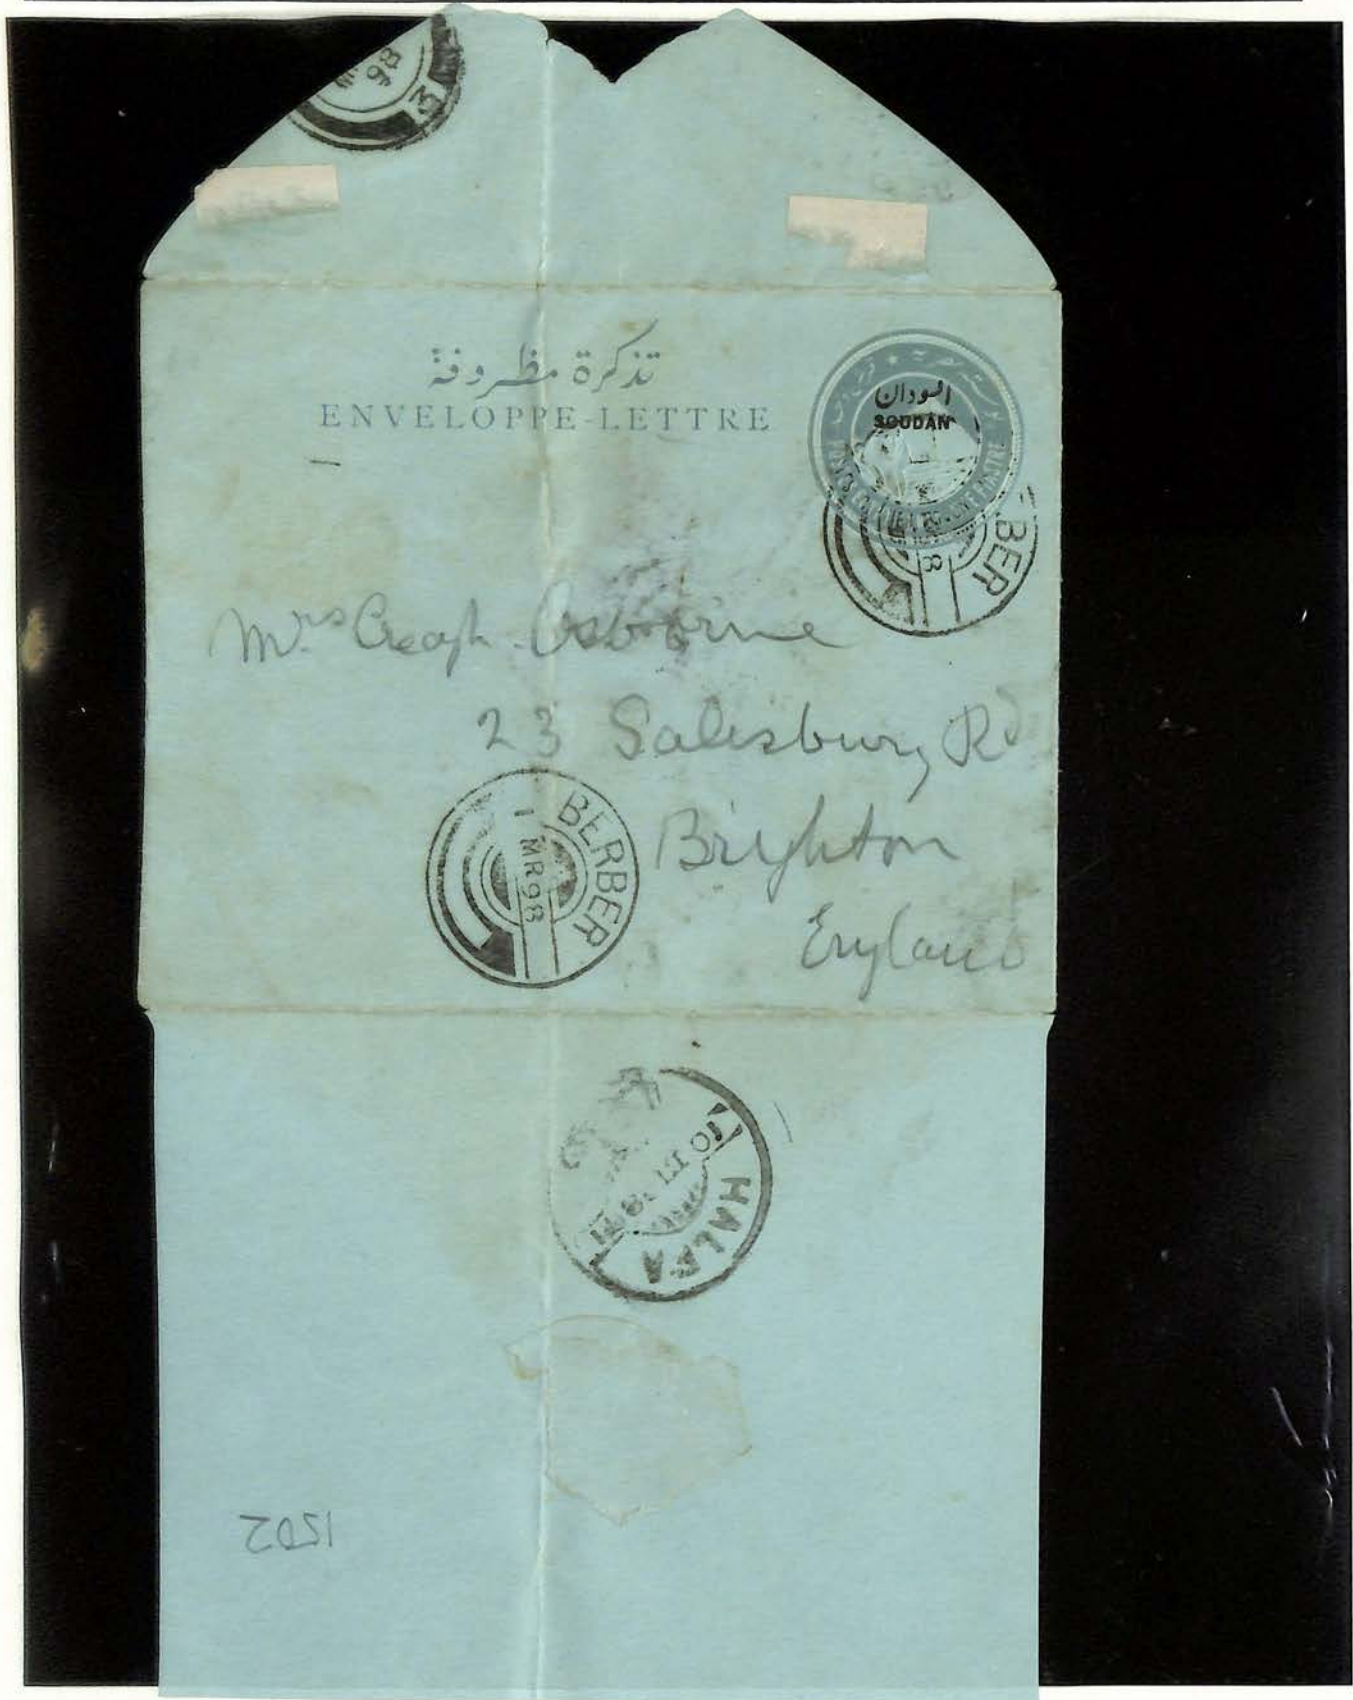 98
تذكرة مظروفة
ENVELOPPE-LETTRE
السودان
SOUDAN
BER
8
Mrs Creagh Osborne
23 Salisbury Rd
Brighton
England
BERBER
1 MR 98
HALFA
10 III
1502